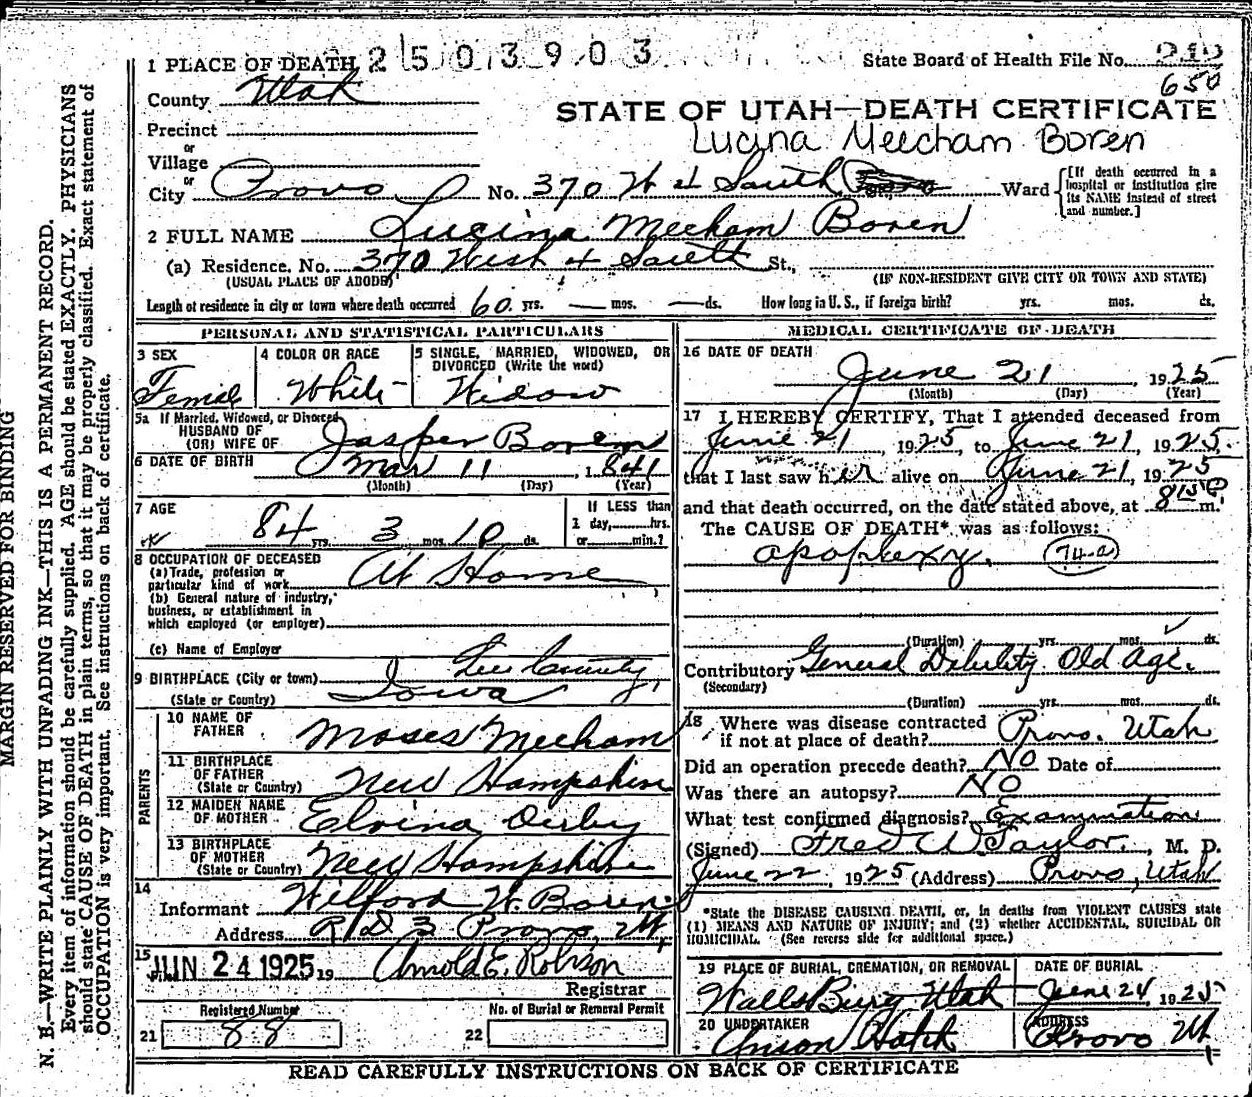 1 PLACE OF DEATH 2503903
State Board of Health File No.
650
County Utah
STATE OF UTAH—DEATH CERTIFICATE
Lucina Meecham Boren
Precinct
or
Village
or
City Provo No. 370 W 4 South Ward
[If death occurred in a hospital or institution give its NAME instead of street and number.]
2 FULL NAME Lucina Mecham Boren
(a) Residence. No. 370 West 4 South St.,
(USUAL PLACE OF ABODE) (IF NON-RESIDENT GIVE CITY OR TOWN AND STATE)
Length of residence in city or town where death occurred 60 yrs. — mos. — ds. How long in U. S., if foreign birth? yrs. mos. ds.
PERSONAL AND STATISTICAL PARTICULARS
3 SEX
Female
4 COLOR OR RACE
White
5 SINGLE, MARRIED, WIDOWED, OR DIVORCED (Write the word)
Widow
5a If Married, Widowed, or Divorced
HUSBAND OF
(OR) WIFE OF Jasper Boren
6 DATE OF BIRTH Mar 11, 1841
(Month) (Day) (Year)
7 AGE
84 yrs. 3 mos. 10 ds.
If LESS than
1 day, hrs.
or min.?
8 OCCUPATION OF DECEASED
(a) Trade, profession or
particular kind of work At Home
(b) General nature of industry,
business, or establishment in
which employed (or employer)
(c) Name of Employer
9 BIRTHPLACE (City or town) Lee County,
(State or Country) Iowa
PARENTS
10 NAME OF
FATHER Moses Mecham
11 BIRTHPLACE
OF FATHER
(State or Country) New Hampshire
12 MAIDEN NAME
OF MOTHER Elvina Derby
13 BIRTHPLACE
OF MOTHER
(State or Country) New Hampshire
14
Informant Wilford W. Boren
Address R D 3 Provo, Ut
15
FILED JUN 24 1925 19 Arnold E. Robison
Registrar
Registered Number
21 88
No. of Burial or Removal Permit
22
MEDICAL CERTIFICATE OF DEATH
16 DATE OF DEATH
June 21, 1925
(Month) (Day) (Year)
17 I HEREBY CERTIFY, That I attended deceased from
June 21, 1925, to June 21, 1925.
that I last saw her alive on June 21, 1925
and that death occurred, on the date stated above, at 815 P. m.
The CAUSE OF DEATH* was as follows:
apoplexy. 74-a
(Duration) yrs. mos. ds.
Contributory General Debility. Old Age.
(Secondary)
(Duration) yrs. mos. ds.
18 Where was disease contracted
if not at place of death? Provo. Utah
Did an operation precede death? No Date of
Was there an autopsy? No
What test confirmed diagnosis? Examination
(Signed) Fred W Taylor., M. D.
June 22, 1925 (Address) Provo, Utah
*State the DISEASE CAUSING DEATH, or, in deaths from VIOLENT CAUSES state
(1) MEANS AND NATURE OF INJURY; and (2) whether ACCIDENTAL, SUICIDAL OR
HOMICIDAL. (See reverse side for additional space.)
19 PLACE OF BURIAL, CREMATION, OR REMOVAL
Wallsburg Utah
DATE OF BURIAL
June 24, 1925
20 UNDERTAKER
Anson Hatch
ADDRESS
Provo Ut
READ CAREFULLY INSTRUCTIONS ON BACK OF CERTIFICATE
MARGIN RESERVED FOR BINDING
N. B.—WRITE PLAINLY WITH UNFADING INK—THIS IS A PERMANENT RECORD.
Every item of information should be carefully supplied. AGE should be stated EXACTLY. PHYSICIANS
should state CAUSE OF DEATH in plain terms, so that it may be properly classified. Exact statement of
OCCUPATION is very important. See instructions on back of certificate.